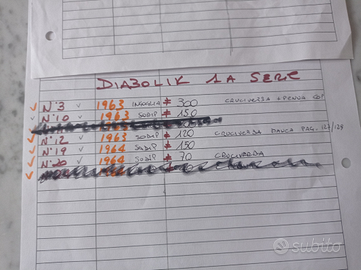 DIABOLIK 1A SERIE
✓ N°3 ✓ 1963 INGOGLIA ≠ 300 CRUCIVERBA + PENNA COP
✓ N°10 ✓ 1963 SODIP ≠ 150
✓ N°12 ✓ 1963 SODIP ≠ 120 CRUCIVERBA MANCA PAG. 127/128
✓ N°19 ✓ 1964 SODIP ≠ 150
✓ N°20 ✓ 1964 SODIP ≠ 70 CRUCIVERBA
subito